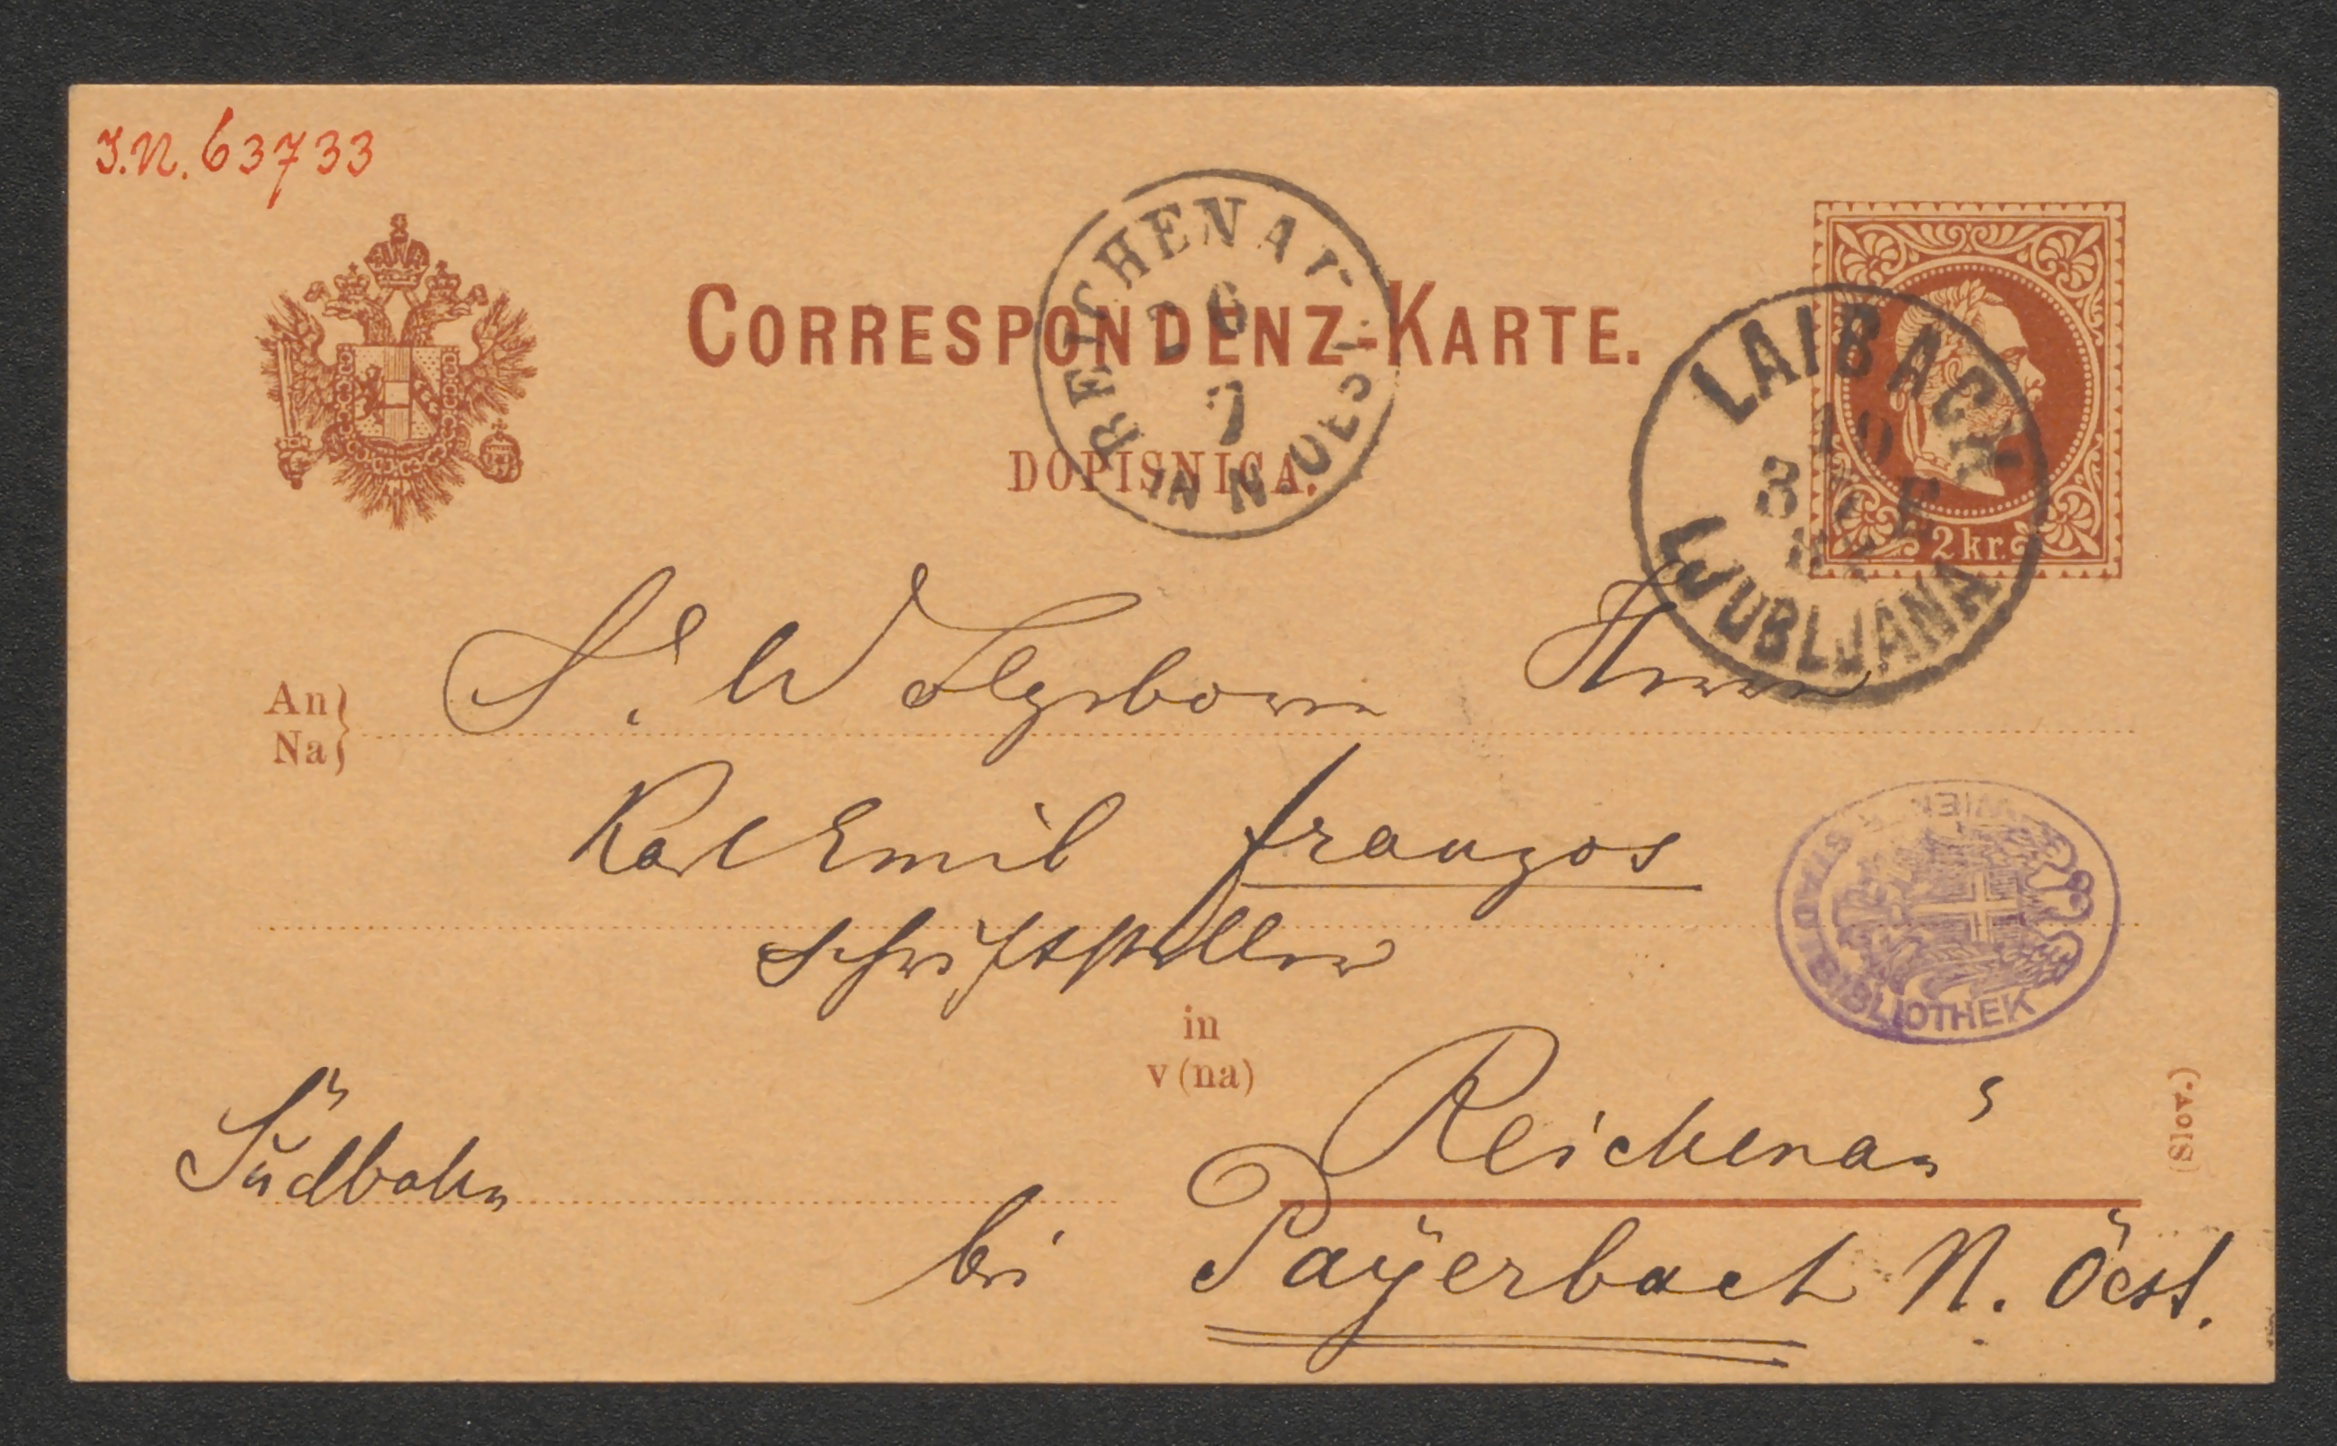 I.N. 63733
CORRESPONDENZ-KARTE.
DOPISNICA.
REICHENAU
IN N. OEST.
7
LAIBACH
LJUBLJANA
2 kr.
An
Na
Sr. Wolgeboren Herrn
Karl Emil Franzos
Schriftsteller
WIENER STADTBIBLIOTHEK
in
v (na)
Reichenau
(Slov.)
Südbahn
bei Payerbach N. Öest.